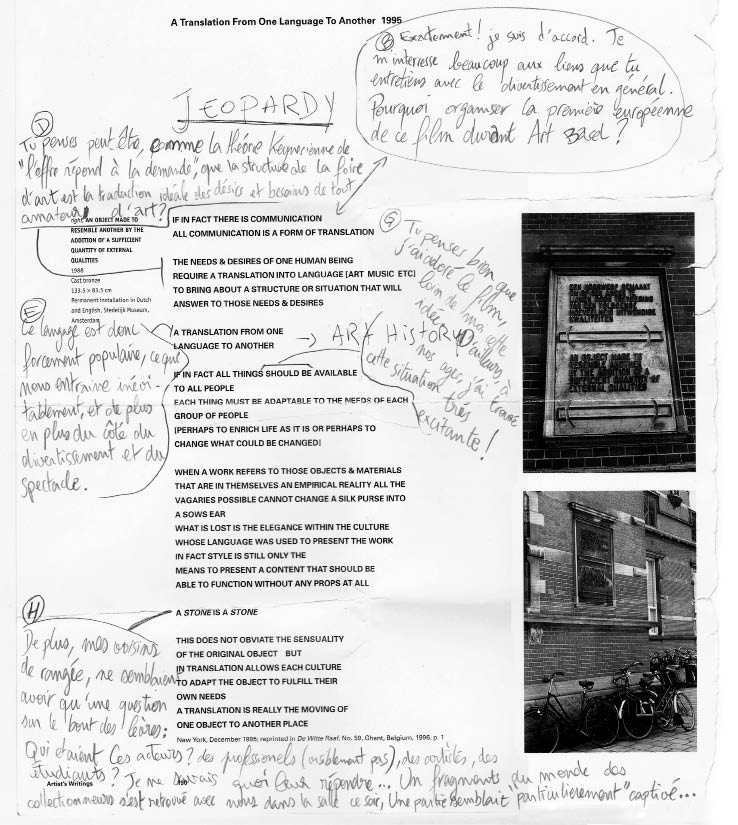 A Translation From One Language To Another 1995
B Exactement! je suis d'accord. Je
m'interresse beaucoup aux liens que tu
entretiens avec le divertissement en général.
Pourquoi organiser la première européenne
de ce film durant Art Basel?
JEOPARDY
D
Tu penses peut être, comme la théorie Keynesienne de
"l'offre répond à la demande", que la structure de la foire
d'art est la traduction idéale des désirs et besoins de tout
amateurs d'art?
AN OBJECT MADE TO
RESEMBLE ANOTHER BY THE
ADDITION OF A SUFFICIENT
QUANTITY OF EXTERNAL
QUALITIES
1988
Cast bronze
133.5 × 83.5 cm
Permanent installation in Dutch
and English, Stedelijk Museum,
Amsterdam
IF IN FACT THERE IS COMMUNICATION
ALL COMMUNICATION IS A FORM OF TRANSLATION
THE NEEDS & DESIRES OF ONE HUMAN BEING
REQUIRE A TRANSLATION INTO LANGUAGE [ART MUSIC ETC]
TO BRING ABOUT A STRUCTURE OR SITUATION THAT WILL
ANSWER TO THOSE NEEDS & DESIRES
A TRANSLATION FROM ONE
LANGUAGE TO ANOTHER
→ ART HISTORY
IF IN FACT ALL THINGS SHOULD BE AVAILABLE
TO ALL PEOPLE
EACH THING MUST BE ADAPTABLE TO THE NEEDS OF EACH
GROUP OF PEOPLE
[PERHAPS TO ENRICH LIFE AS IT IS OR PERHAPS TO
CHANGE WHAT COULD BE CHANGED]
WHEN A WORK REFERS TO THOSE OBJECTS & MATERIALS
THAT ARE IN THEMSELVES AN EMPIRICAL REALITY ALL THE
VAGARIES POSSIBLE CANNOT CHANGE A SILK PURSE INTO
A SOWS EAR
WHAT IS LOST IS THE ELEGANCE WITHIN THE CULTURE
WHOSE LANGUAGE WAS USED TO PRESENT THE WORK
IN FACT STYLE IS STILL ONLY THE
MEANS TO PRESENT A CONTENT THAT SHOULD BE
ABLE TO FUNCTION WITHOUT ANY PROPS AT ALL
A STONE IS A STONE
THIS DOES NOT OBVIATE THE SENSUALITY
OF THE ORIGINAL OBJECT BUT
IN TRANSLATION ALLOWS EACH CULTURE
TO ADAPT THE OBJECT TO FULFILL THEIR
OWN NEEDS
A TRANSLATION IS REALLY THE MOVING OF
ONE OBJECT TO ANOTHER PLACE
New York, December 1995; reprinted in De Witte Raaf, No. 59, Ghent, Belgium, 1996, p. 1
G Tu penses bien que
j'ai adoré le film,
loin de moi cette
idée. D'ailleurs, à
nos ages, j'ai trouvé
cette situation très
excitante!
E
Le langage est donc
forcement populaire, ce qui
nous entraine inévi-
tablement, et de plus
en plus du côté du
divertissement et du
spectacle.
H
De plus, mes voisins
de rangée, ne semblaient
avoir qu'une question
sur le bout des lèvres:
Qui etaient ces acteurs? des professionels (visiblement pas), des artistes, des
étudiants? Je ne savais quoi leur répondre... Un fragments du monde des
collectionneurs s'est retrouvé avec nous dans la salle ce soir, Une partie semblait "particulierement" captivé...
Artist's Writings
AN OBJECT MADE